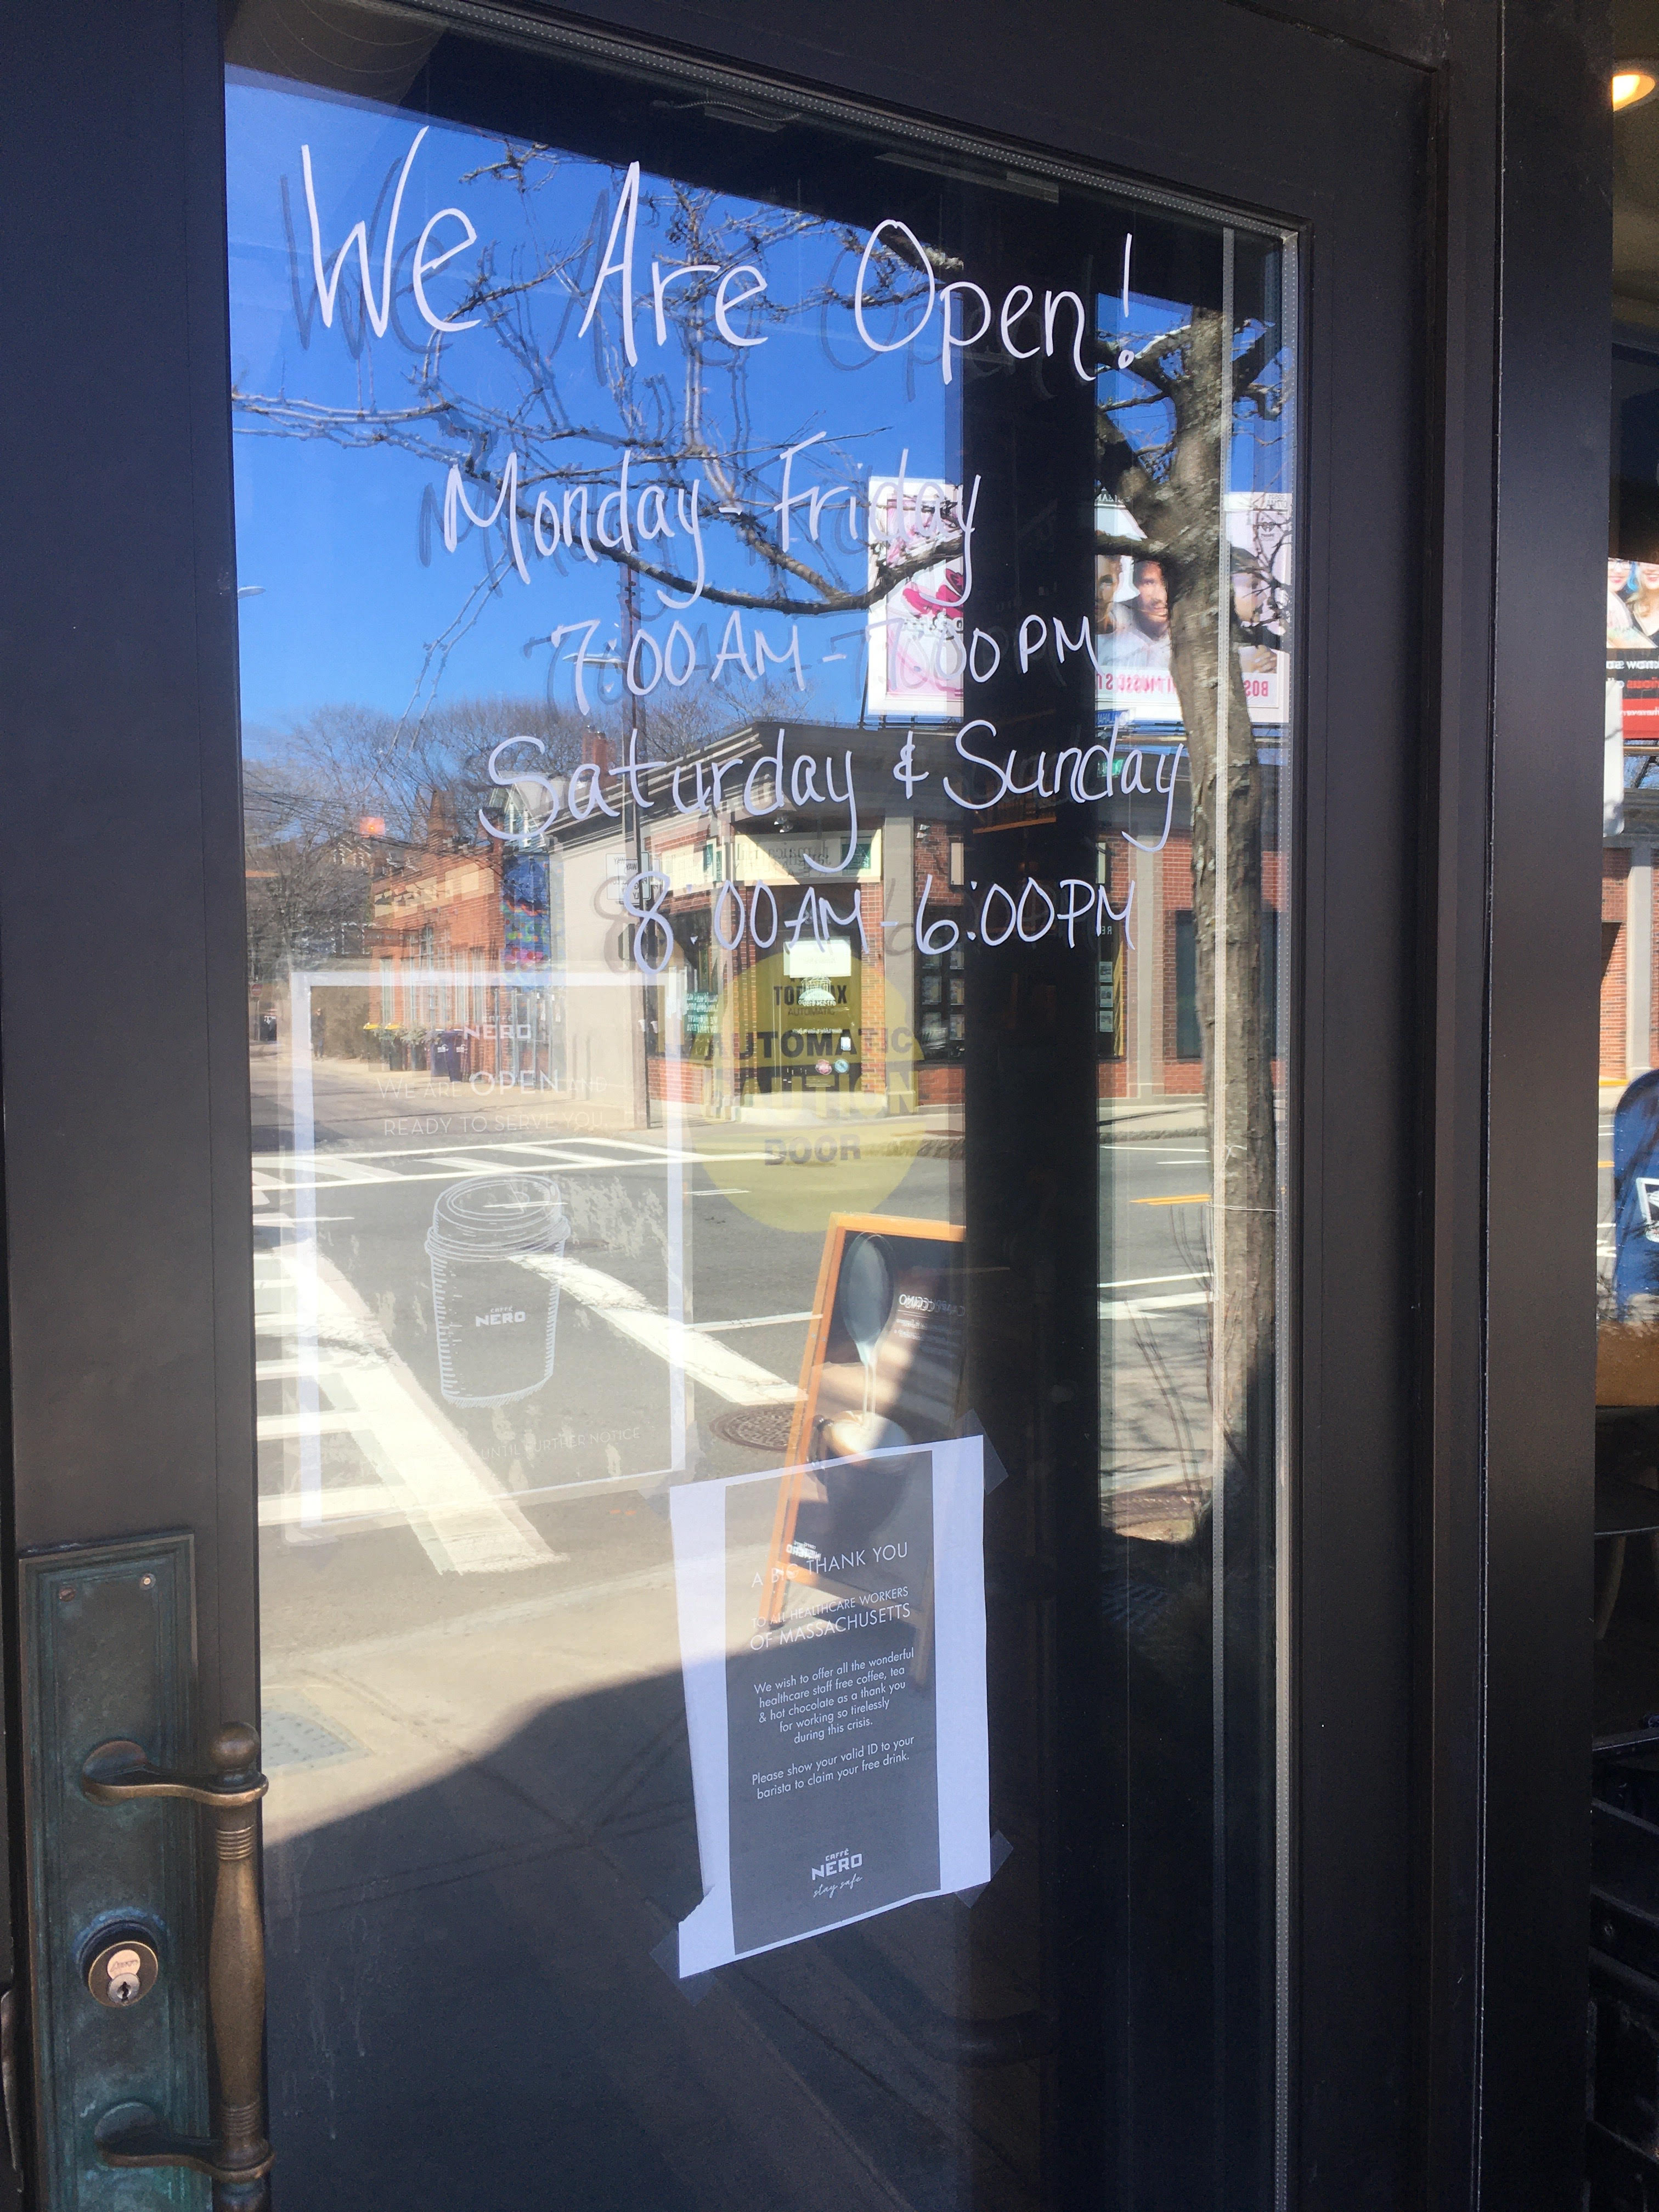 We Are Open!
Monday - Friday
7:00 AM - 7:00 PM
Saturday & Sunday
8:00 AM - 6:00 PM
CAFFÈ
NERO
WE ARE OPEN AND
READY TO SERVE YOU
CAFFÈ
NERO
UNTIL FURTHER NOTICE
AUTOMATIC
CAUTION
DOOR
CAPPUCCINO
A BIG THANK YOU
TO ALL HEALTHCARE WORKERS
OF MASSACHUSETTS
We wish to offer all the wonderful
healthcare staff free coffee, tea
& hot chocolate as a thank you
for working so tirelessly
during this crisis.
Please show your valid ID to your
barista to claim your free drink.
CAFFÈ
NERO
stay safe